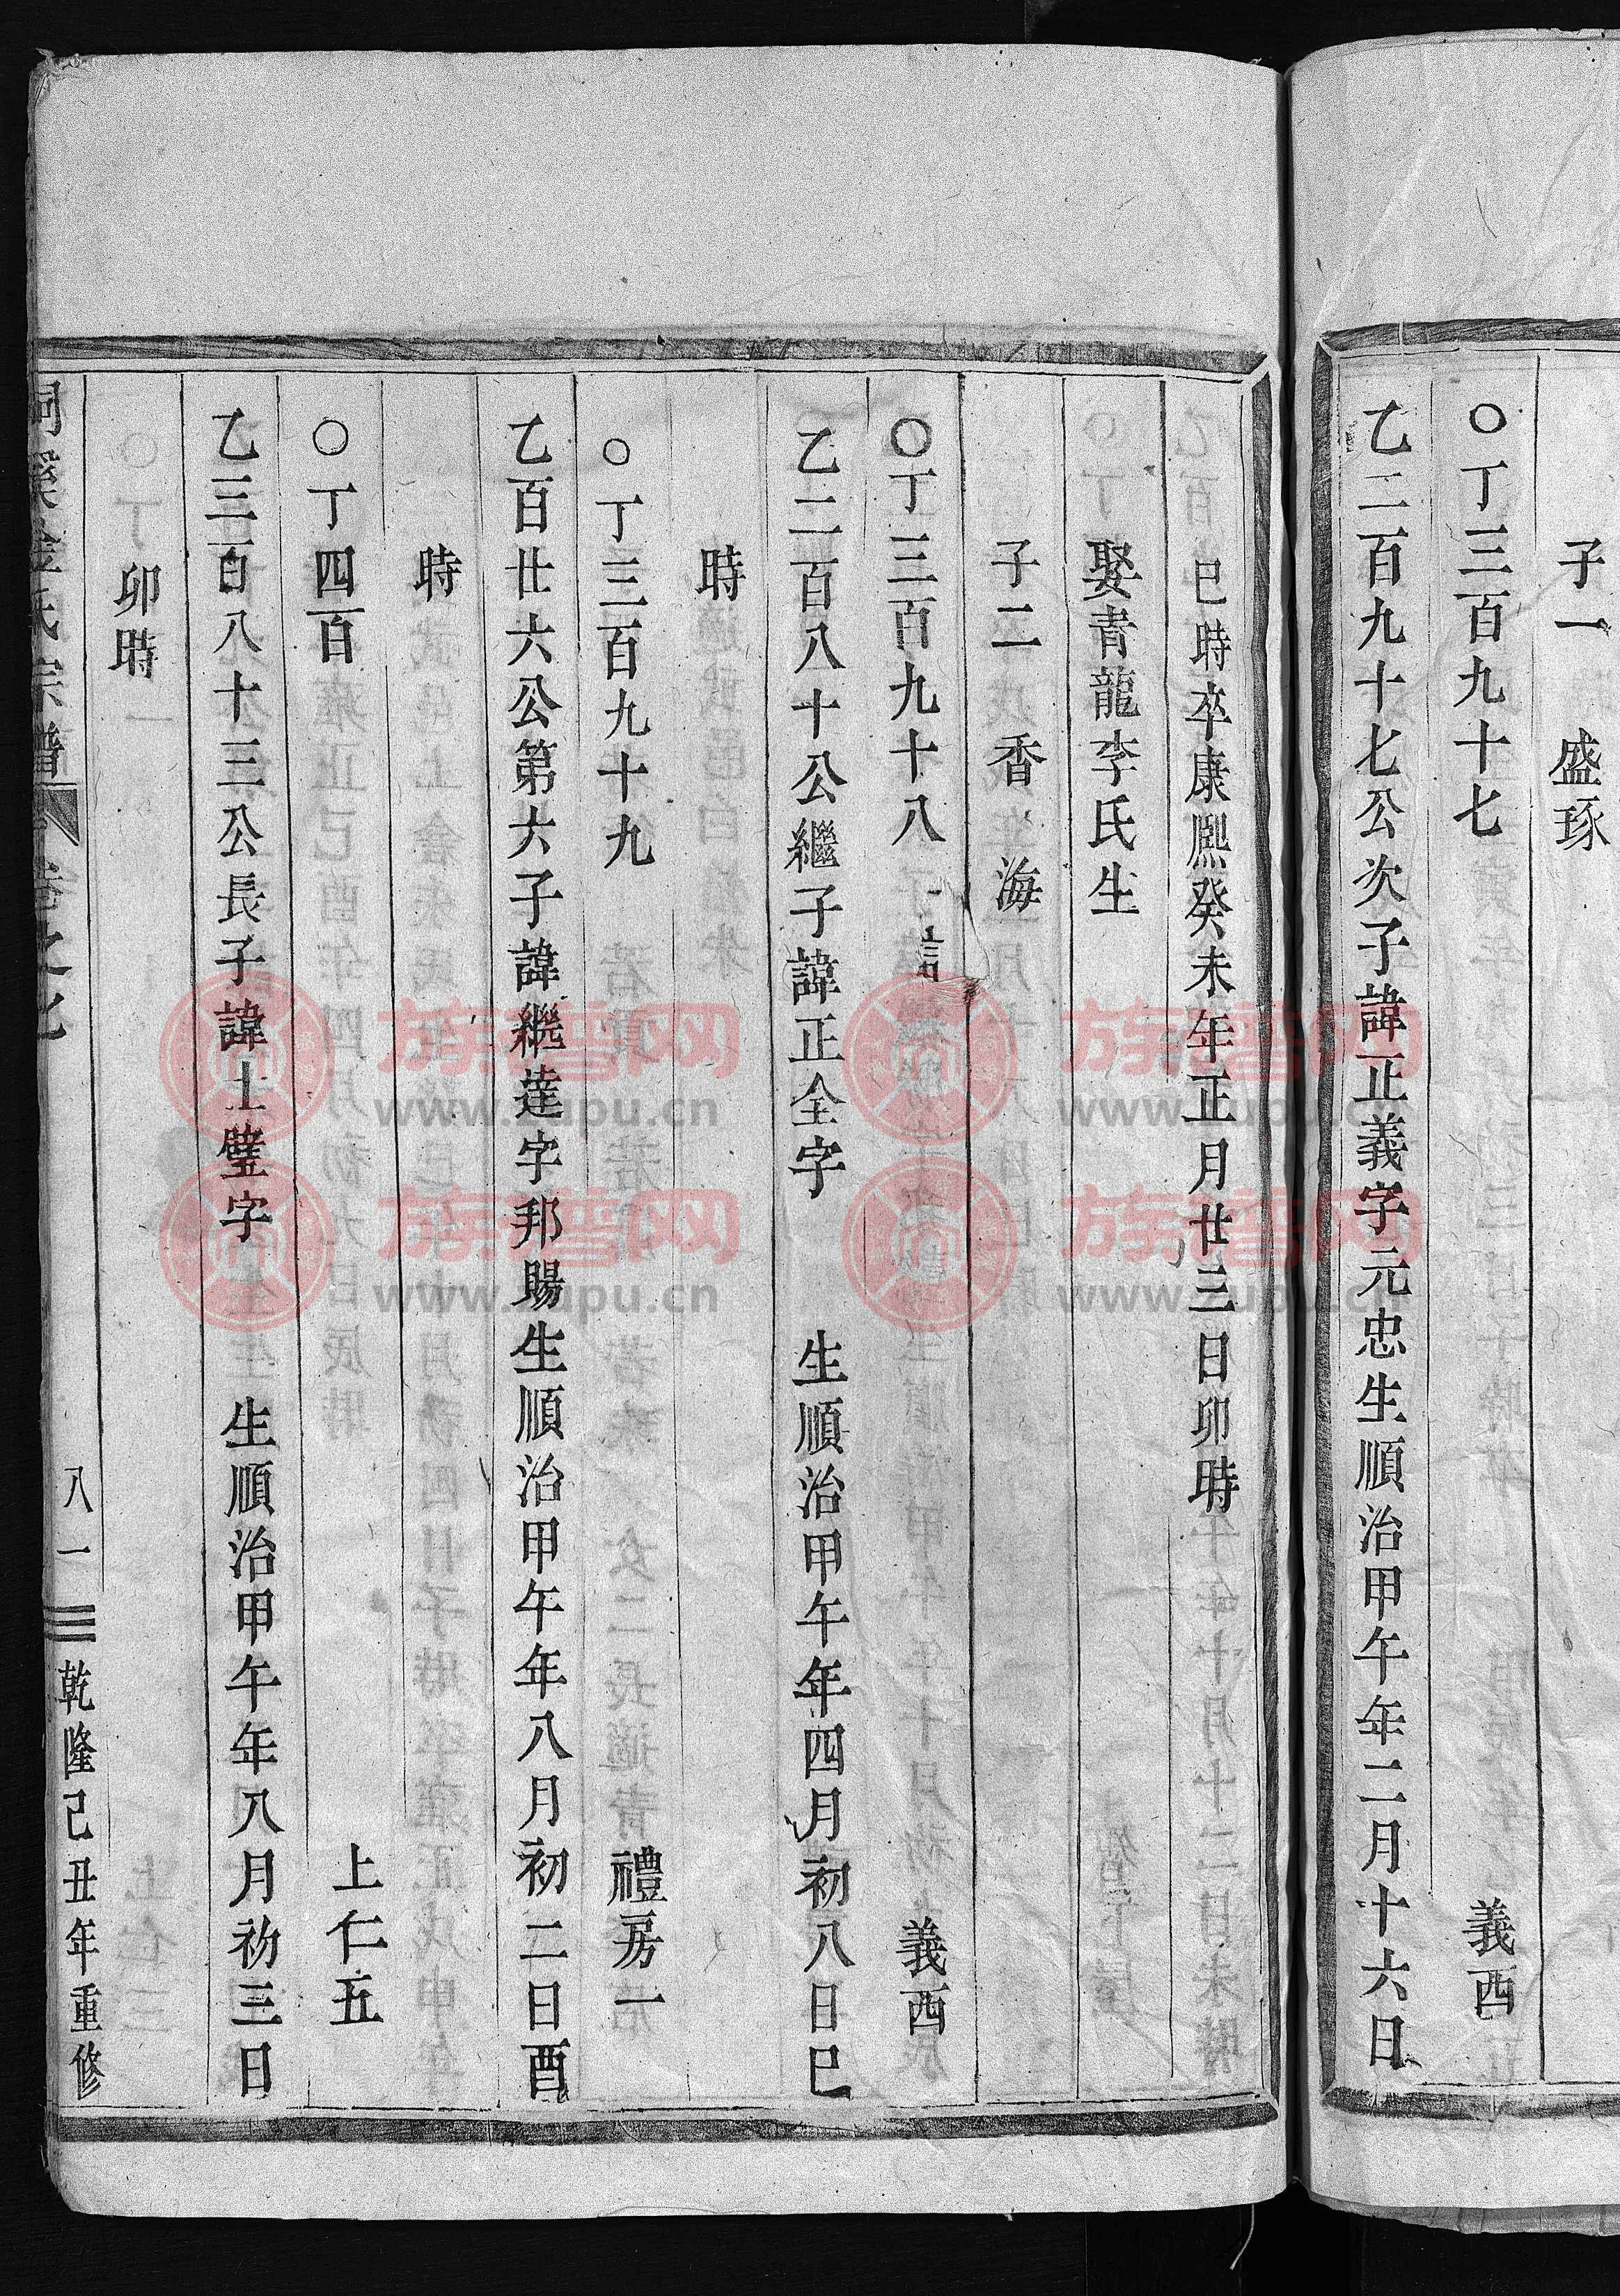 子一 盛琢
○丁三百九十七 義西
乙二百九十七公次子諱正義字元忠生順治甲午年二月十六日
巳時卒康熙癸未年正月廿三日卯時
娶青龍李氏生
子二 香 海
○丁三百九十八 義西
乙二百八十公繼子諱正全字 生順治甲午年四月初八日巳
時
○丁三百九十九 禮房一
乙百廿六公第六子諱繼達字邦賜生順治甲午年八月初二日酉
時
○丁四百 上仁五
乙三百八十三公長子諱士璧字 生順治甲午年八月初三日
卯時
金氏宗譜 卷之七 八一 乾隆己丑年重修
族譜网
www.zupu.cn
族譜网
www.zupu.cn
族譜网
www.zupu.cn
族譜网
www.zupu.cn